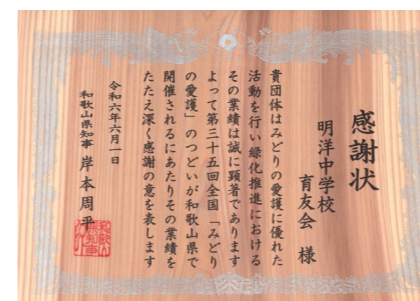 感謝状
明洋中学校
育友会 様
貴団体はみどりの愛護に優れた
活動を行い緑化推進における
その業績は誠に顕著であります
よって第三十五回全国「みどり
の愛護」のつどいが和歌山県で
開催されるにあたりその業績を
たたえ深く感謝の意を表します
令和六年六月一日
和歌山県知事 岸本周平